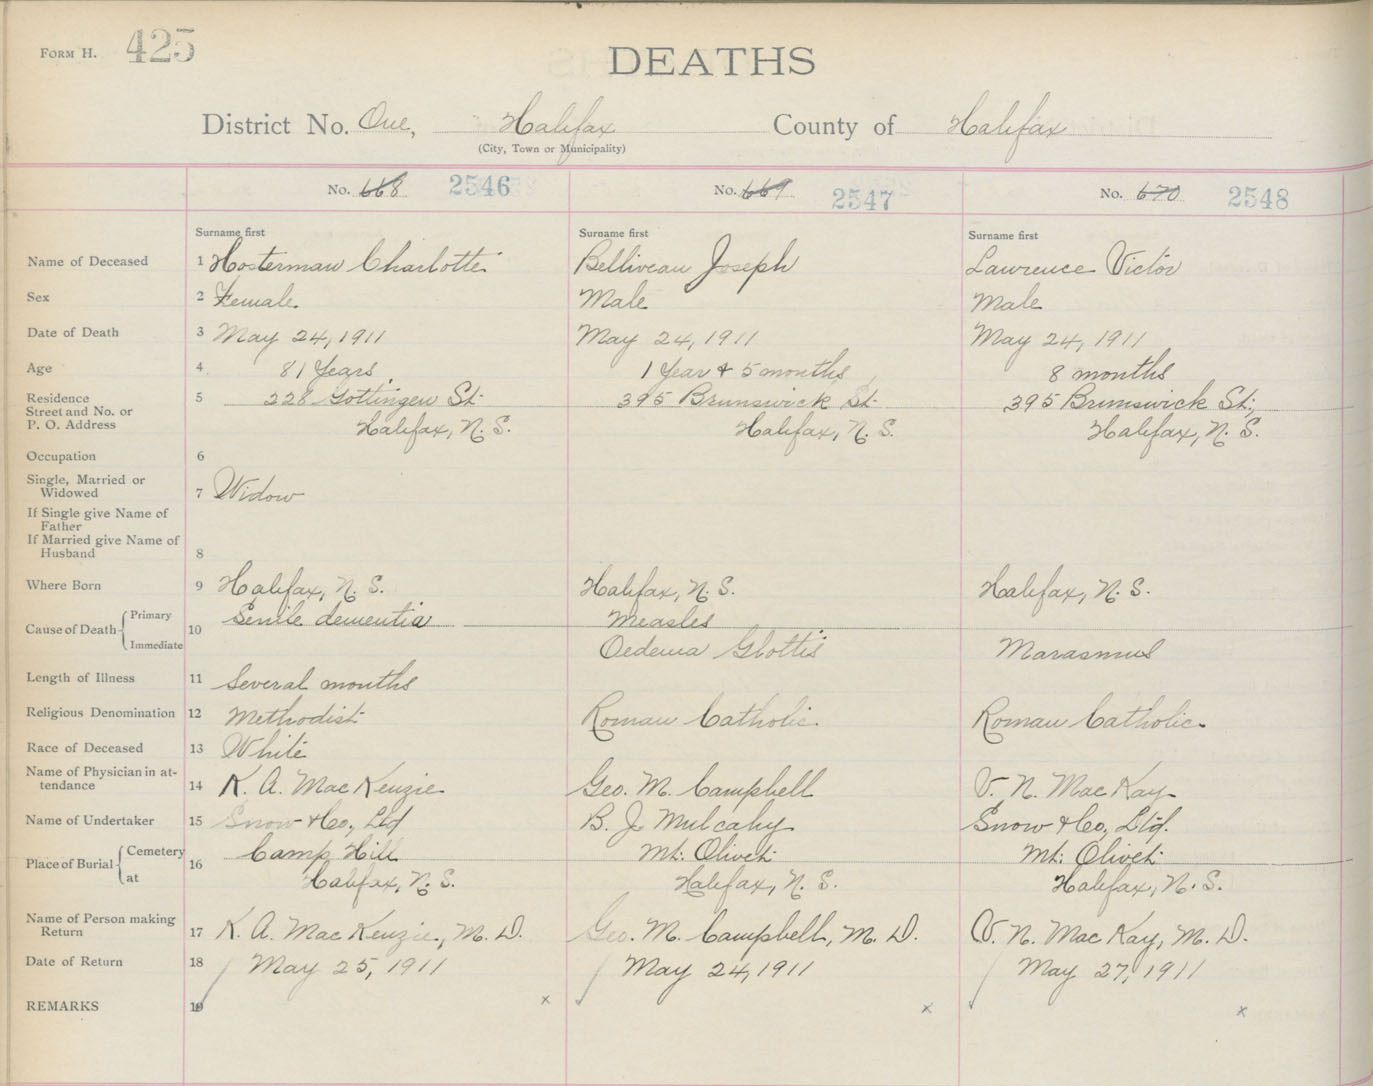 FORM H. 425
DEATHS
District No. One, Halifax County of Halifax
(City, Town or Municipality)
No. 668 2546 No. 669 2547 No. 670 2548
Surname first Surname first Surname first
Name of Deceased 1 Hosterman Charlotte Belliveau Joseph Lawrence Victor
Sex 2 Female Male Male
Date of Death 3 May 24, 1911 May 24, 1911 May 24, 1911
Age 4 81 Years 1 Year & 5 months 8 months
Residence 5 228 Gottingen St. 395 Brunswick St. 395 Brunswick St.,
Street and No. or
P. O. Address Halifax, N. S. Halifax, N. S. Halifax, N. S.
Occupation 6
Single, Married or
Widowed 7 Widow
If Single give Name of
Father
If Married give Name of
Husband 8
Where Born 9 Halifax, N. S. Halifax, N. S. Halifax, N. S.
Cause of Death Primary 10 Senile dementia Measles
Immediate Oedema Glottis Marasmus
Length of Illness 11 Several months
Religious Denomination 12 Methodist Roman Catholic Roman Catholic
Race of Deceased 13 White
Name of Physician in at-
tendance 14 K. A. MacKenzie Geo. M. Campbell V. N. MacKay
Name of Undertaker 15 Snow & Co., Ltd B. J. Mulcahy Snow & Co., Ltd.
Place of Burial Cemetery 16 Camp Hill Mt. Olivet Mt. Olivet
at Halifax, N. S. Halifax, N. S. Halifax, N. S.
Name of Person making
Return 17 K. A. MacKenzie, M. D. Geo. M. Campbell, M. D. V. N. MacKay, M. D.
Date of Return 18 May 25, 1911 May 24, 1911 May 27, 1911
REMARKS 19 x x x